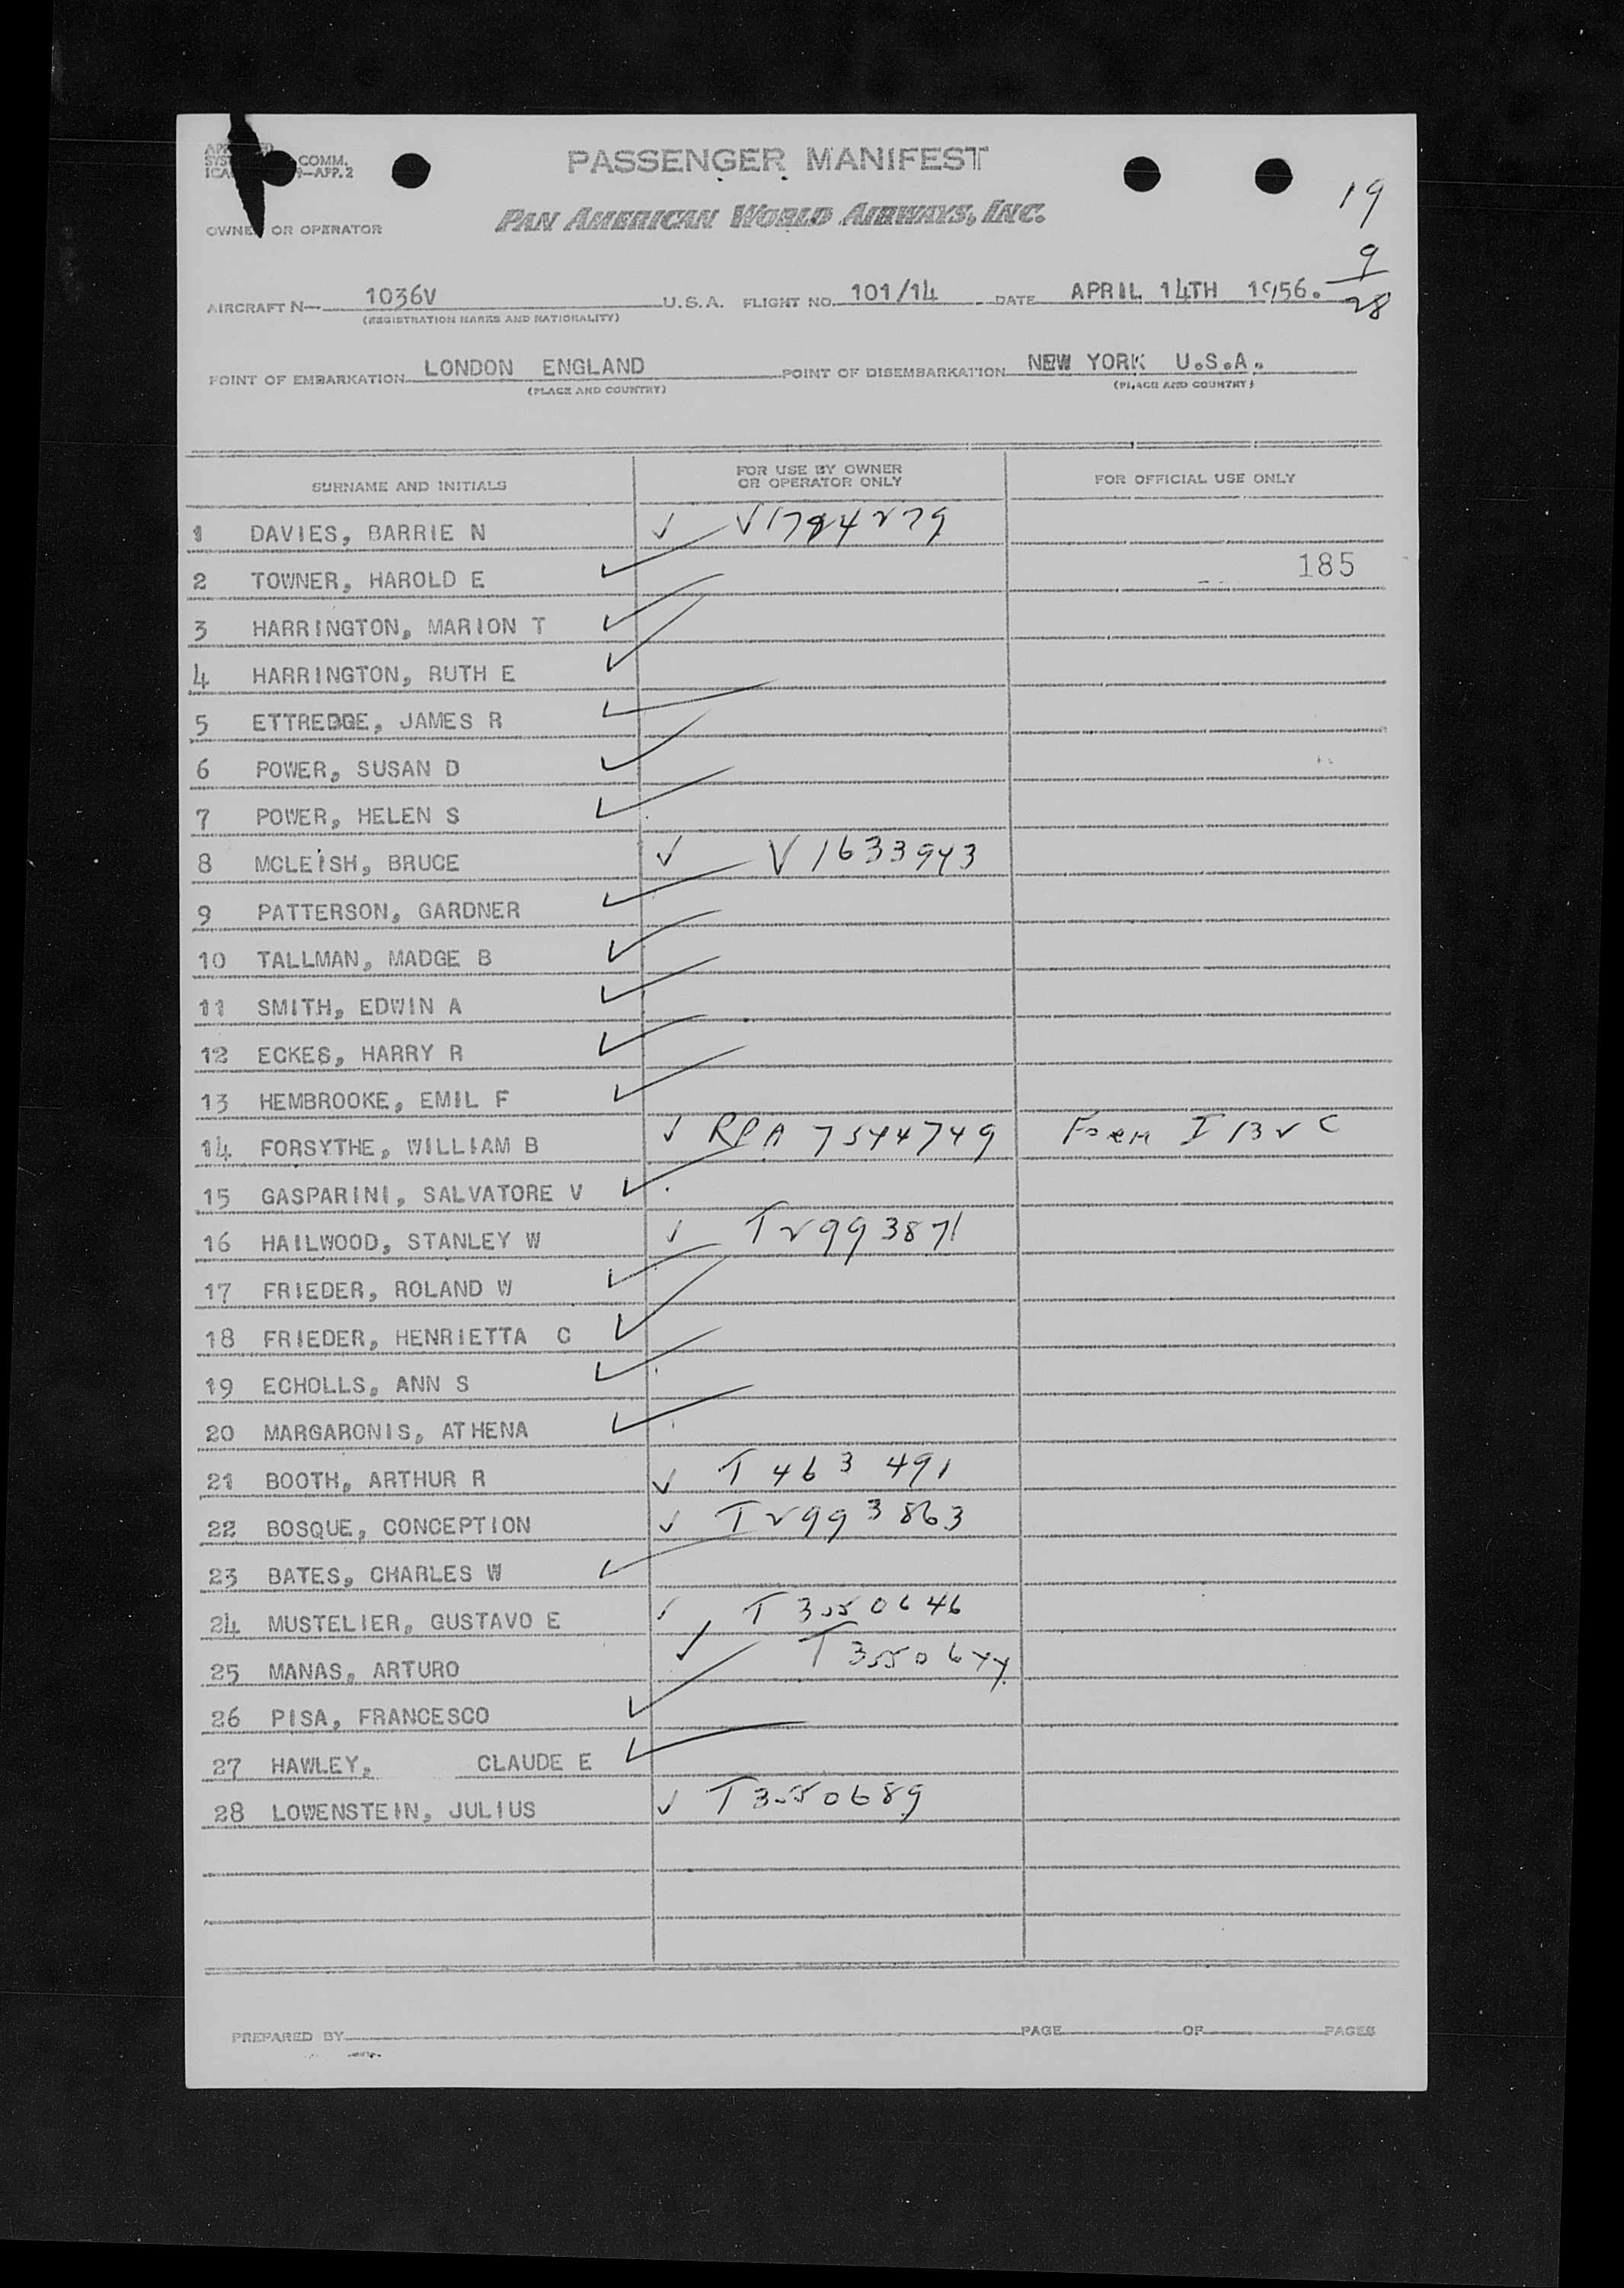 COMM.
PASSENGER MANIFEST
19
PAN AMERICAN WORLD AIRWAYS, INC.
OWNER OR OPERATOR
9
28
AIRCRAFT N— 1036V U.S.A. FLIGHT NO. 101/14 DATE APRIL 14TH 1956.
(REGISTRATION MARKS AND NATIONALITY)
POINT OF EMBARKATION LONDON ENGLAND POINT OF DISEMBARKATION NEW YORK U.S.A.
(PLACE AND COUNTRY) (PLACE AND COUNTRY)
SURNAME AND INITIALS FOR USE BY OWNER OR OPERATOR ONLY FOR OFFICIAL USE ONLY
1 DAVIES, BARRIE N ✓ V1784279
2 TOWNER, HAROLD E ✓ 185
3 HARRINGTON, MARION T ✓
4 HARRINGTON, RUTH E ✓
5 ETTREDGE, JAMES R ✓
6 POWER, SUSAN D ✓
7 POWER, HELEN S ✓
8 MCLEISH, BRUCE ✓ V1633943
9 PATTERSON, GARDNER ✓
10 TALLMAN, MADGE B ✓
11 SMITH, EDWIN A ✓
12 ECKES, HARRY R ✓
13 HEMBROOKE, EMIL F ✓
14 FORSYTHE, WILLIAM B ✓ RPA 7544749 Form I
15 GASPARINI, SALVATORE V ✓
16 HAILWOOD, STANLEY W ✓ T2993871
17 FRIEDER, ROLAND W ✓
18 FRIEDER, HENRIETTA C ✓
19 ECHOLLS, ANN S ✓
20 MARGARONIS, ATHENA ✓
21 BOOTH, ARTHUR R ✓ T463491
22 BOSQUE, CONCEPTION ✓ T2993863
23 BATES, CHARLES W ✓
24 MUSTELIER, GUSTAVO E ✓ T3550646
25 MANAS, ARTURO ✓ T3550644
26 PISA, FRANCESCO ✓
27 HAWLEY, CLAUDE E ✓
28 LOWENSTEIN, JULIUS ✓ T3550689
PREPARED BY PAGE OF PAGES